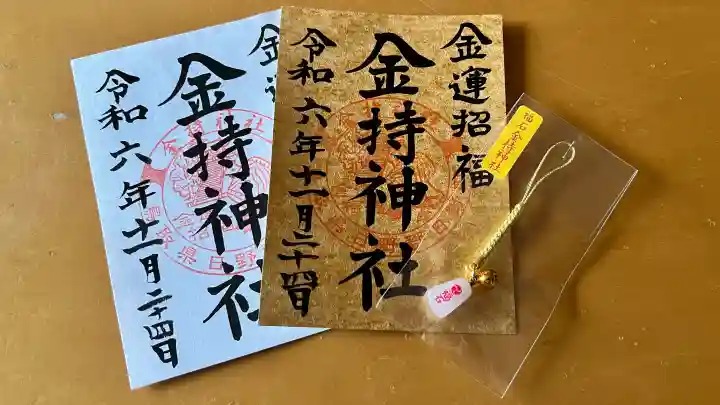 金運
金持神社
令和六年十一月二十四日
鳥取県日野
金運招福
金持神社
令和六年十一月二十四日
金持神社